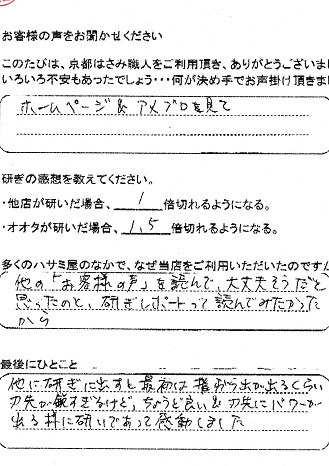 お客様の声をお聞かせください
このたびは、京都はさみ職人をご利用頂き、ありがとうございま
いろいろ不安もあったでしょう・・・何が決め手でお声掛け頂きま
ホームページ & アメブロを見て
研ぎの感想を教えてください。
・他店が研いだ場合、 1 倍切れるようになる。
・オオタが研いだ場合、 1,5 倍切れるようになる。
多くのハサミ屋のなかで、なぜ当店をご利用いただいたのですか
他の「お客様の声」を読んで、大丈夫そうだと
思ったのと、研ぎレポートって読んでみたかった
から
最後にひとこと
他に研ぎに出すと最初は指から血が出るくらい
刃先が鋭すぎるけど、ちょうど良い & 刃先にパワーが
出る様に研いであって感動しました